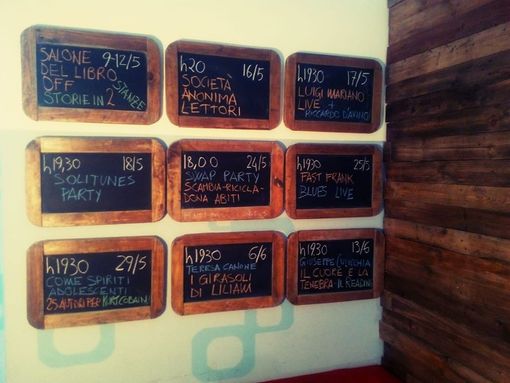 SALONE 9-12/5
DEL LIBRO
OFF
STORIE IN 2 STANZE
h20 16/5
SOCIETÀ
ANONIMA
LETTORI
h1930 17/5
LUIGI MARIANO
LIVE +
RICCARDO D'AVINO
h19,30 18/5
SOLITUNES
PARTY
18,00 24/5
SWAP PARTY
SCAMBIA-RICICLA-
DONA ABITI
h1930 25/5
FAST FRANK
BLUES LIVE
h1930 29/5
COME SPIRITI
ADOLESCENTI
25 AUTORI PER KURT COBAIN
h1930 6/6
TERESA CANONE
I GIRASOLI
DI LILIAM
h1930 13/6
GIUSEPPE CULICCHIA
IL CUORE E LA
TENEBRA